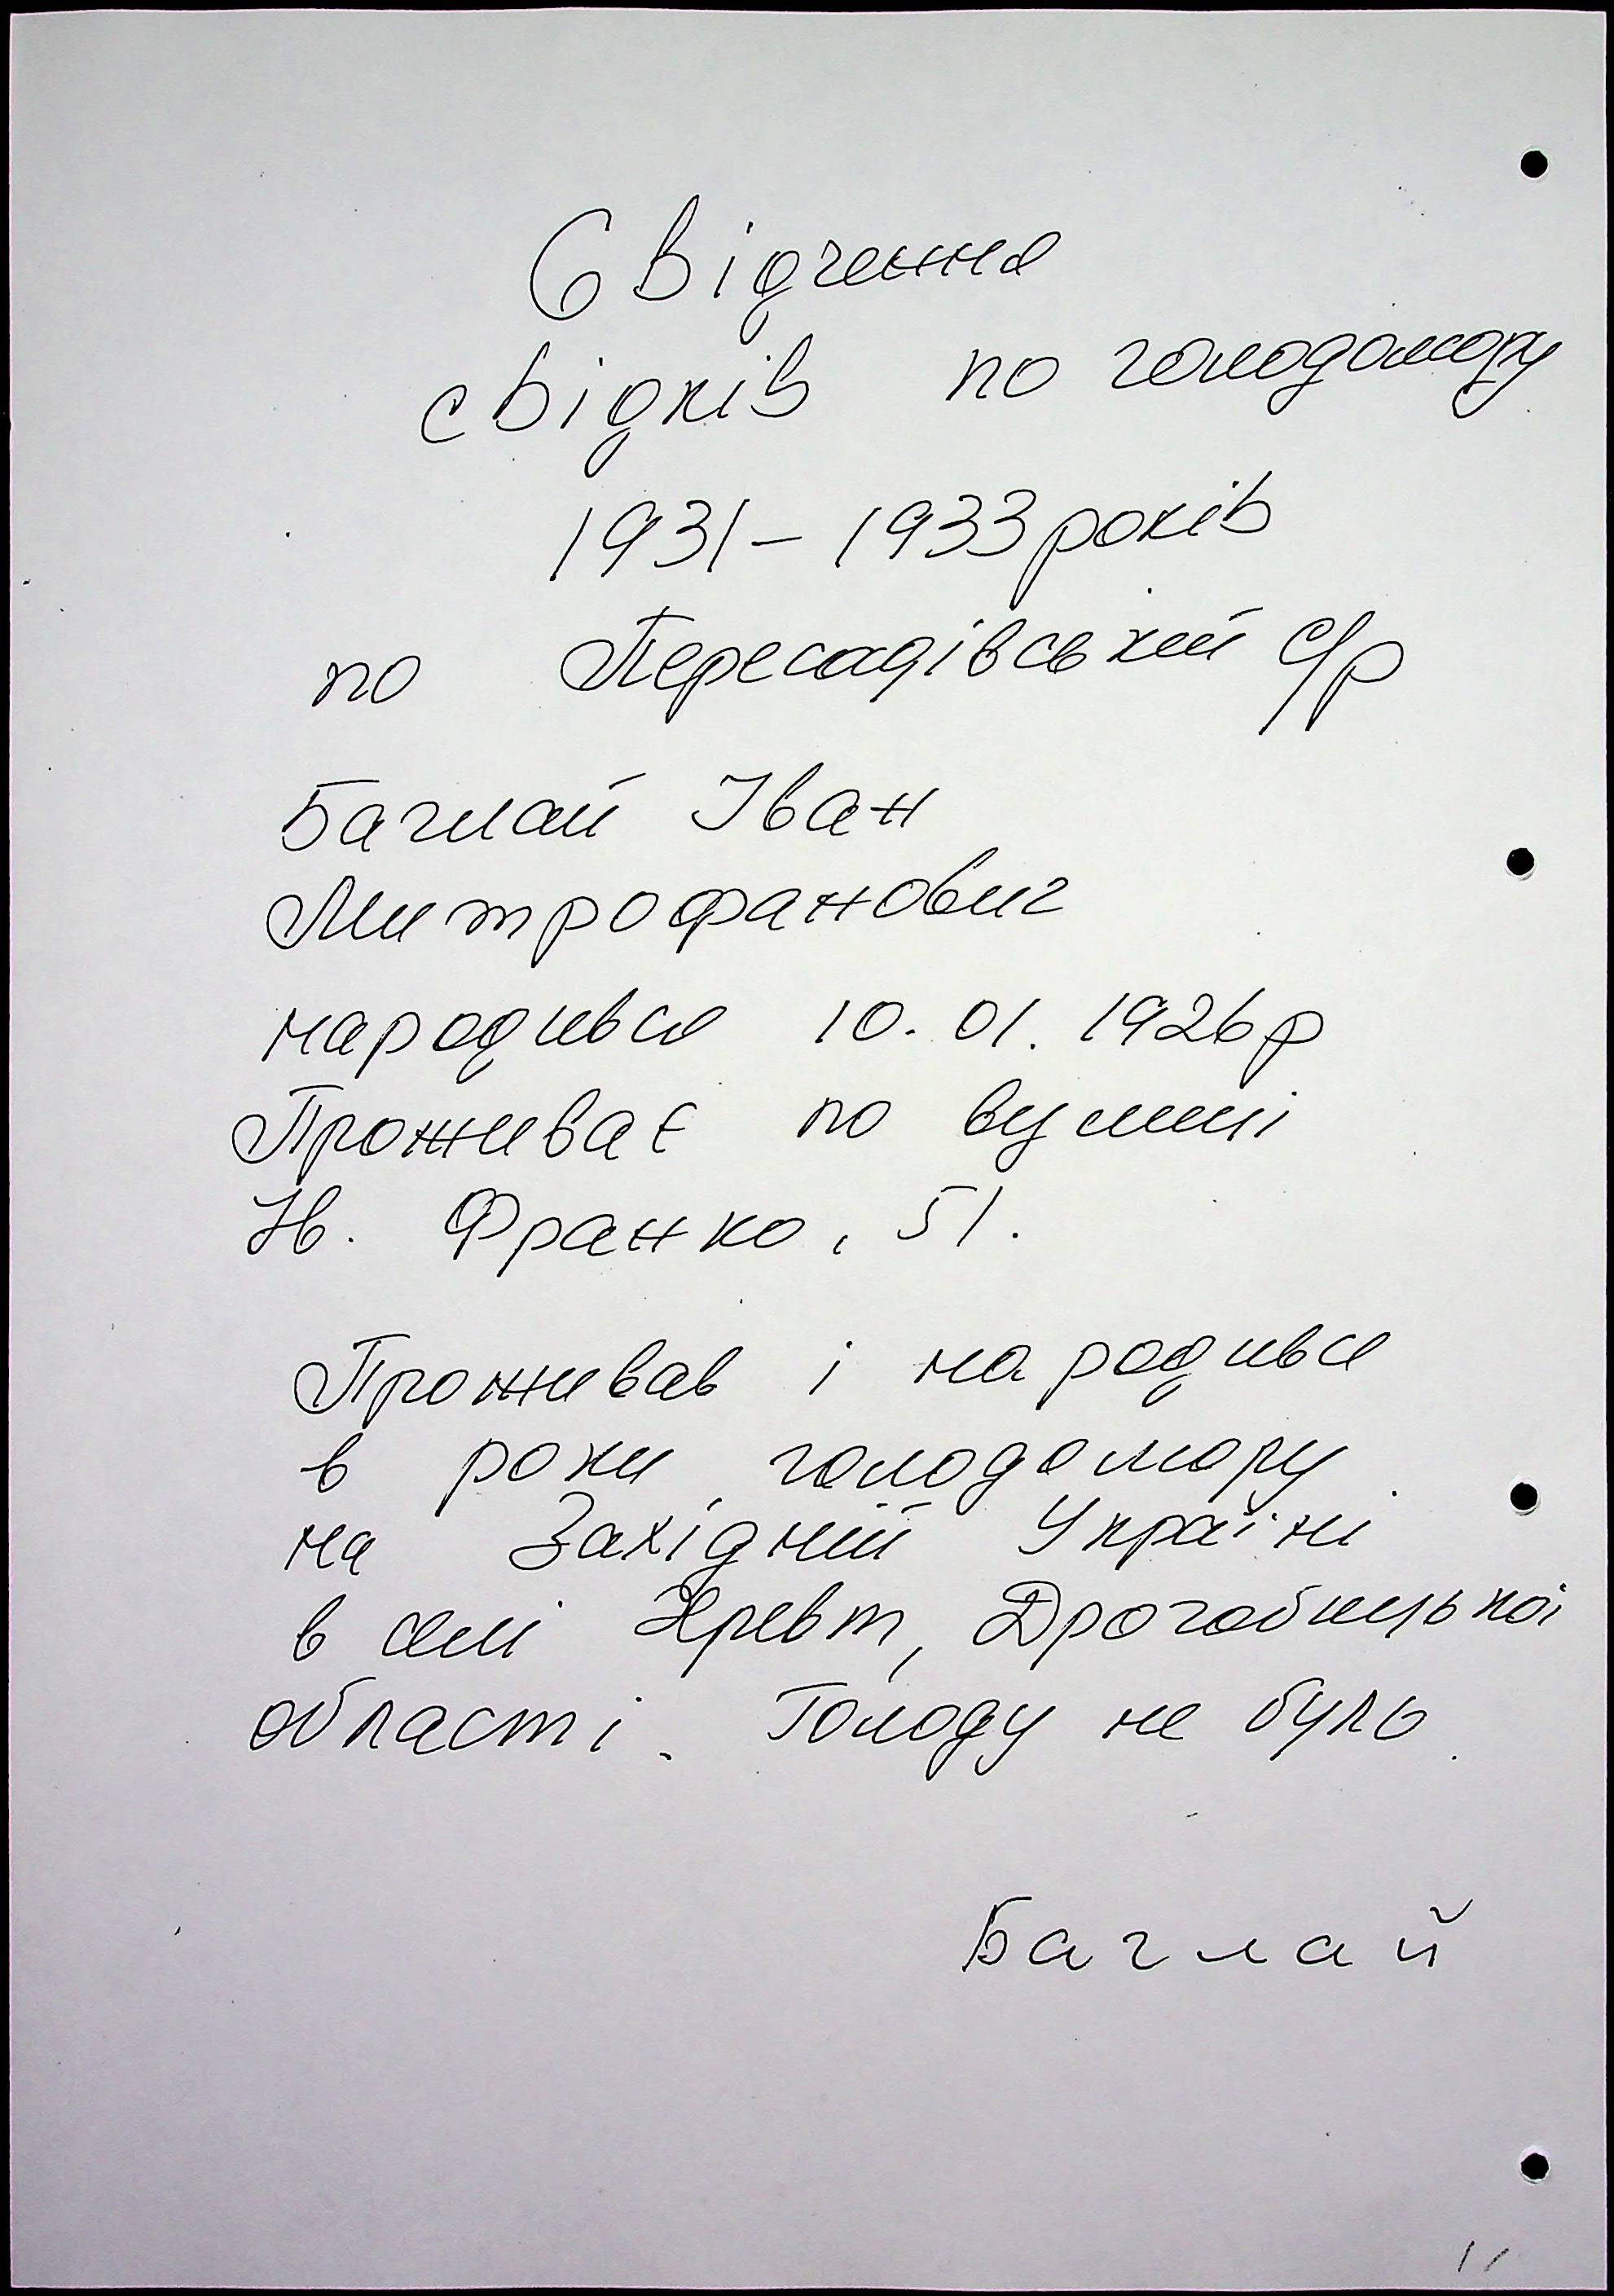 Свідчення
свідків по голодомору
1931 – 1933 років
по Пересадівській с/р
Баглай Іван
Митрофанович
народився 10.01.1926р
Проживає по вулиці
Ів. Франко, 51.
Проживав і народився
в роки голодомору
на Західній Україні
в селі Хревт, Дрогобицької
області. Голоду не було.
Баглай